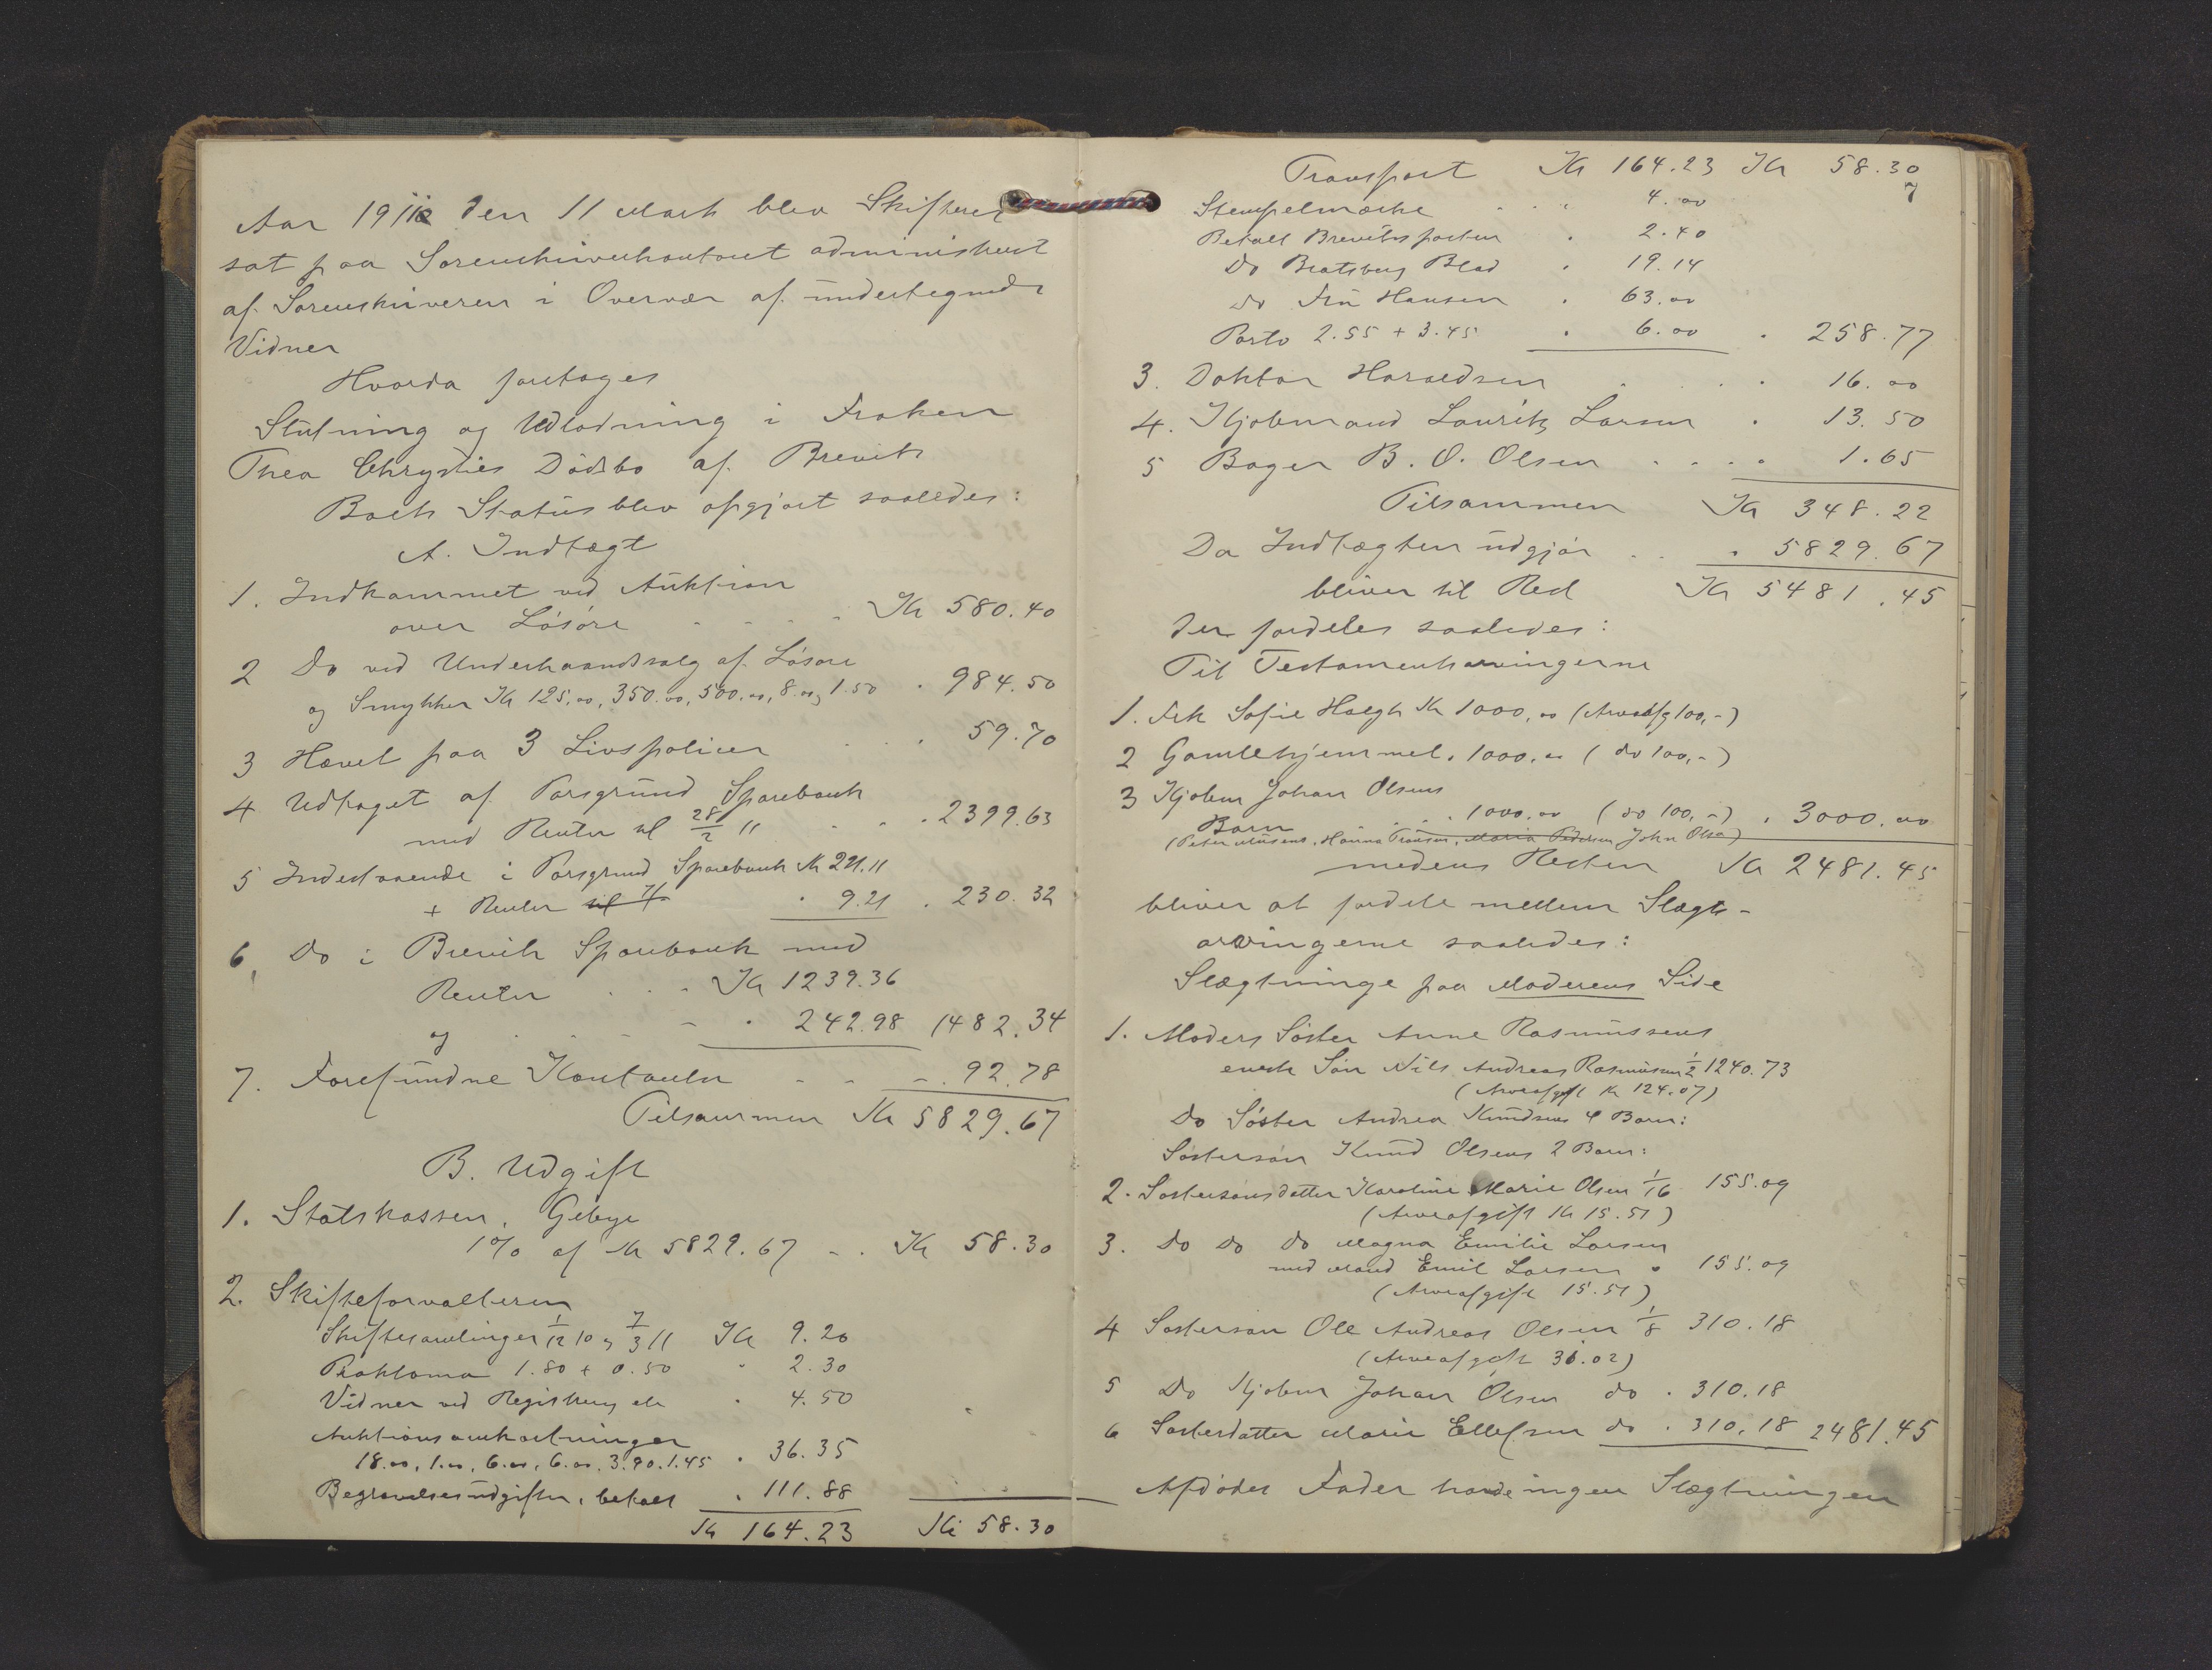 Aar 1911 den 11 Marts blev Skifteret
sat paa Sorenskriverkontoret administreret
af Sorenskriveren i Overvær af undertegnede
Vidner
Hvorda foretoges
Slutning og Udlodning i Frøken
Thea Chrysties Dødsbo af Brevik
Boets Status blev opgjort saaledes:
A. Indtægt
1. Indkommet ved Auktion
over Løsøre . . . . Kr 580.40
2 Do ved Underhaandssalg af Løsøre
og Smykker Kr 125,00, 350.00, 500.00, 8.00, 1.50 . 984.50
3 Hævet paa 3 Livspolicer . . . 59.70
4 Udtaget af Porsgrund Sparebank
med Renter til 28/2 11 . . . 2399.63
5 Indestaaende i Porsgrund Sparebank Kr 221.11
+ Renter til . 9.21 . 230.32
6. Do i Brevik Sparebank med
Renter . . . Kr 1239.36
og . . . . 242.98 1482.34
7. Forefundne Kontanter - - - . 92.78
Tilsammen Kr 5829.67
B. Udgift
1. Statskassen, Gebyr
1% af Kr 5829.67 - . Kr 58.30
2. Skifteforvalteren
Skiftesamlinger 1/12 10 og 7/3 11 Kr 9.20
Proklama 1.80 + 0.50 " 2.30
Vidner ved Registrering etc . 4.50
Auktionsomkostninger
18.00, 1.00, 6.00, 6.00, 3.90, 1.45 . 36.35
Begravelsesudgifter, betalt . 111.88
Kr 164.23 Kr 58.30
7
Transport Kr 164.23 Kr 58.30
Stempelmærke . . . 4.00
Betalt Breviksposten . 2.40
Do Bratsberg Blad . 19.14
Do Fru Hansen . 63.00
Porto 2.55 + 3.45 . 6.00 . 258.77
3. Doktor Haraldsen . . . . 16.00
4. Kjøbmand Lauritz Larsen . 13.50
5 Bager B. O. Olsen . . . . 1.65
Tilsammen Kr 348.22
Da Indtægten udgjør . . . 5829.67
bliver til Rest Kr 5481.45
der fordeles saaledes:
Til Testamentsarvingerne
1. Frk Sofie Høegh Kr 1000,00 (Arveafg 100,-)
2 Gamlehjemmet . 1000.00 (do 100,-)
3 Kjøbm Johan Olsens
Børn . . . 1000.00 (do 100,-) . 3000.00
(Peter, Hanna, Maria Pedersen, John Olsen)
medens Resten Kr 2481.45
bliver at fordele mellem Slægts-
arvingerne saaledes:
Slægtninge paa Moderens Side
1. Moders Søster Anne Rasmussens
eneste Søn Nils Andreas Rasmussen 1/2 1240.73
(Arveafgift Kr 124.07)
Do Søster Andrea Knudsens 4 Børn:
Søstersøn Knud Olsens 2 Børn:
2. Søstersønsdatter Karoline Marie Olsen 1/16 155.09
(Arveafgift Kr 15.51)
3. Do Do Do Magna Emilie Larsen
med Mand Emil Larsen " 155.09
(Arveafgift 15.51)
4 Søstersøn Ole Andreas Olsen 1/8 310.18
(Arveafgift 31.02)
5 Do Kjøbm Johan Olsen do . 310.18
6 Søsterdatter Marie Ellefsen do . 310,18 2481.45
Afdødes Fader havde ingen Slægtninger